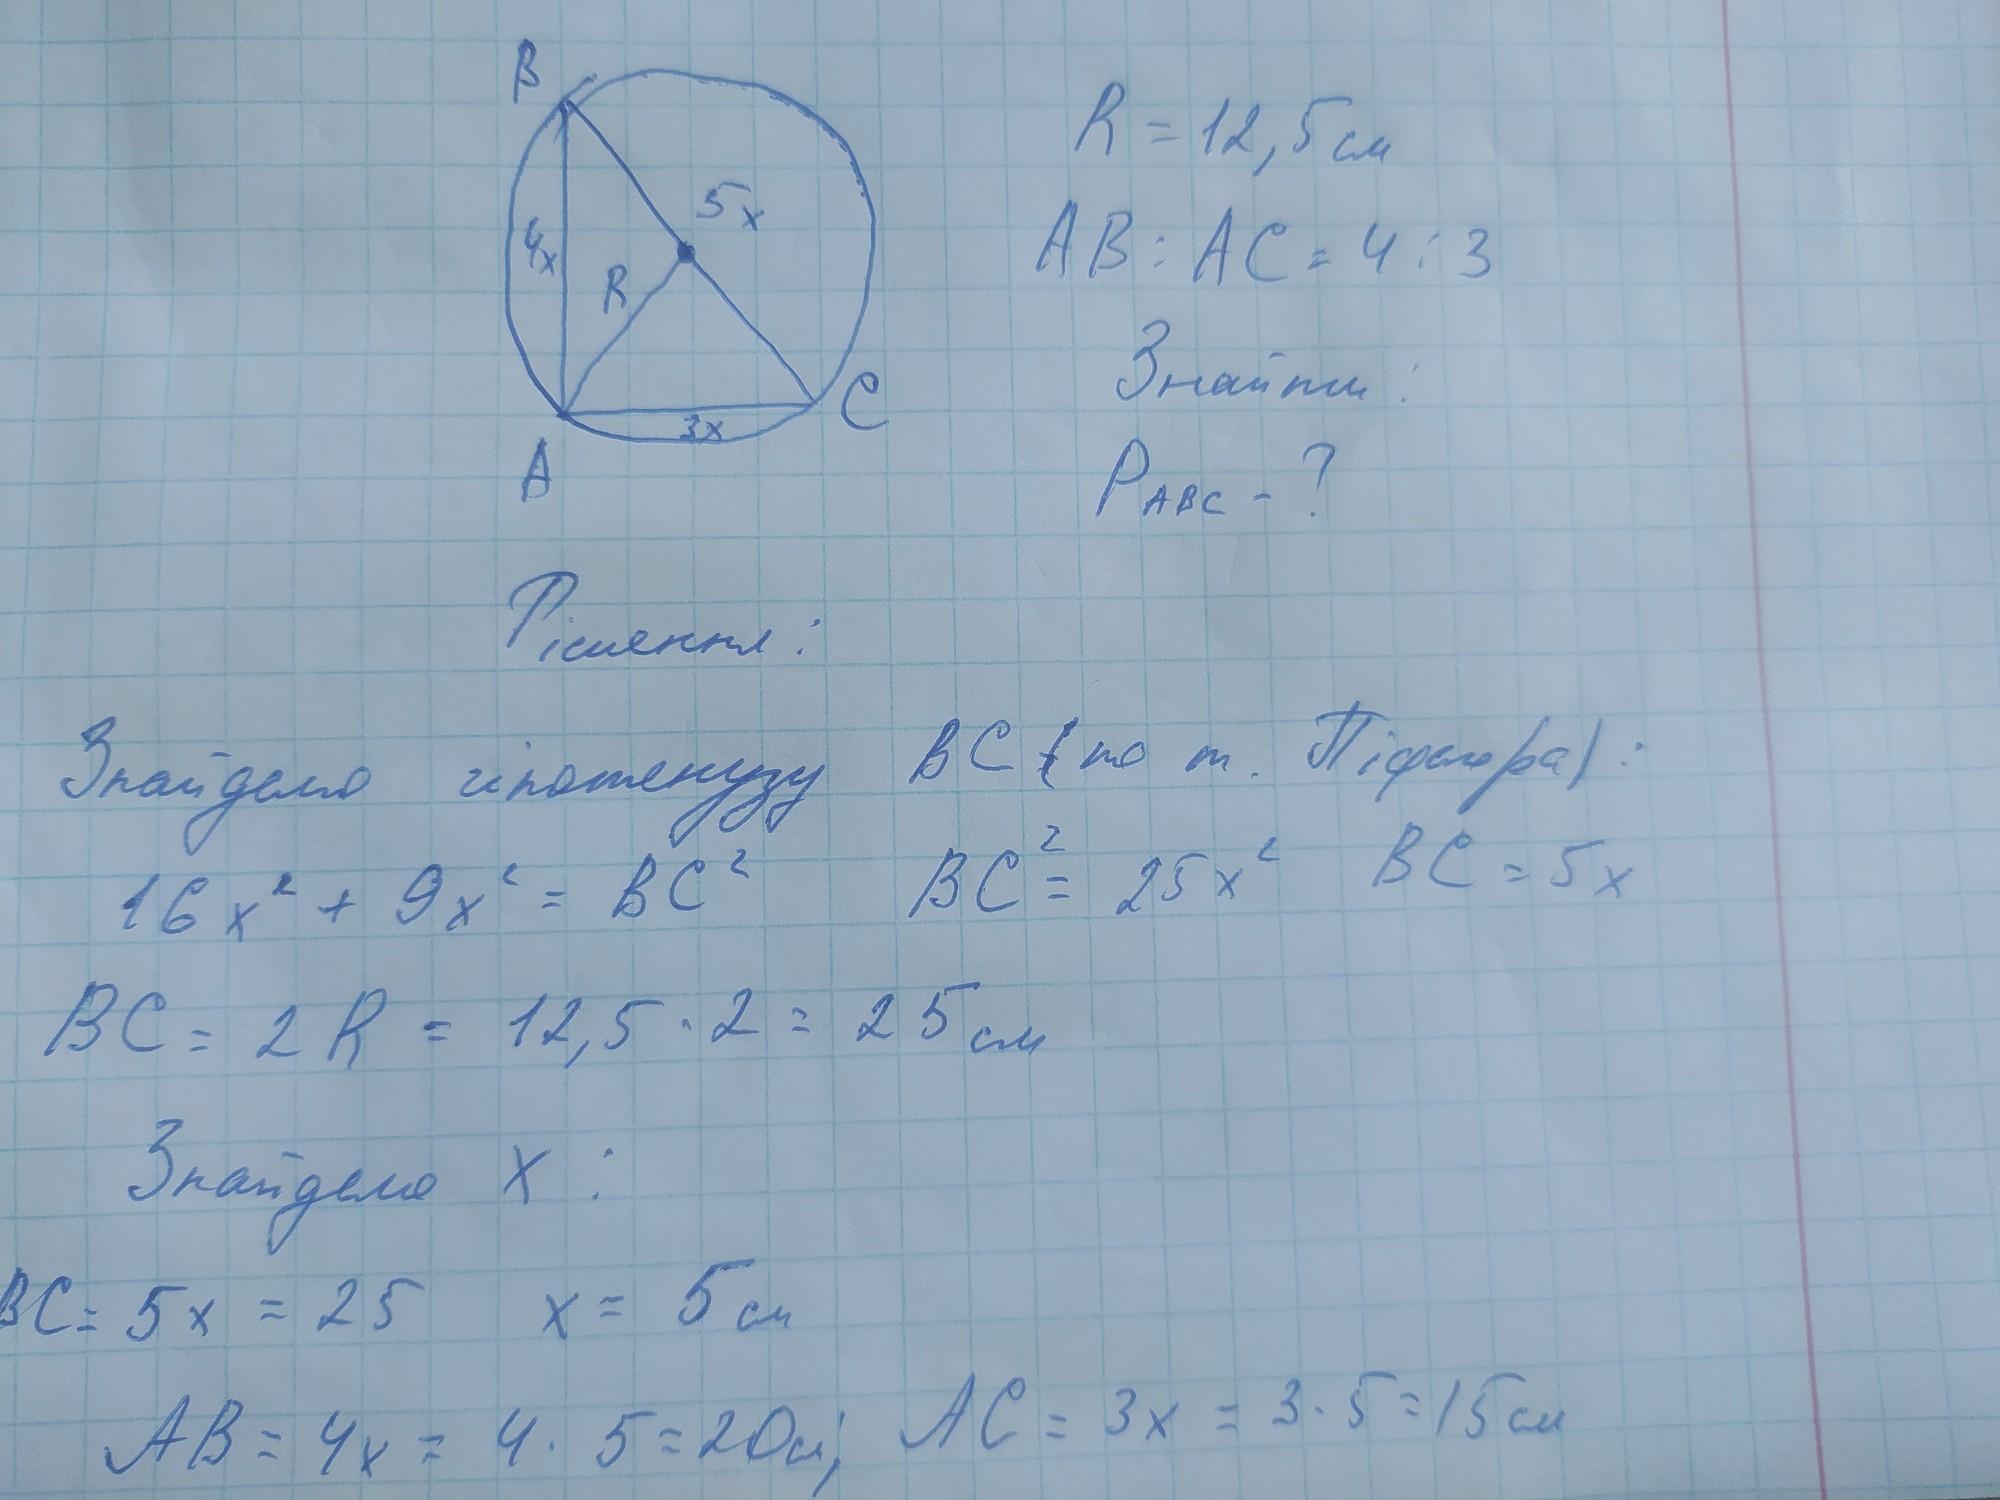 B
5x
4x
R
3x
A
C
R = 12,5 см
AB : AC = 4 : 3
Знайти:
P ABC - ?
Рішення:
Знайдемо гіпотенузу BC (по т. Піфагора):
16x² + 9x² = BC² BC² = 25x² BC = 5x
BC = 2R = 12,5 · 2 = 25 см
Знайдемо x:
BC = 5x = 25 x = 5 см
AB = 4x = 4 · 5 = 20 см; AC = 3x = 3 · 5 = 15 см